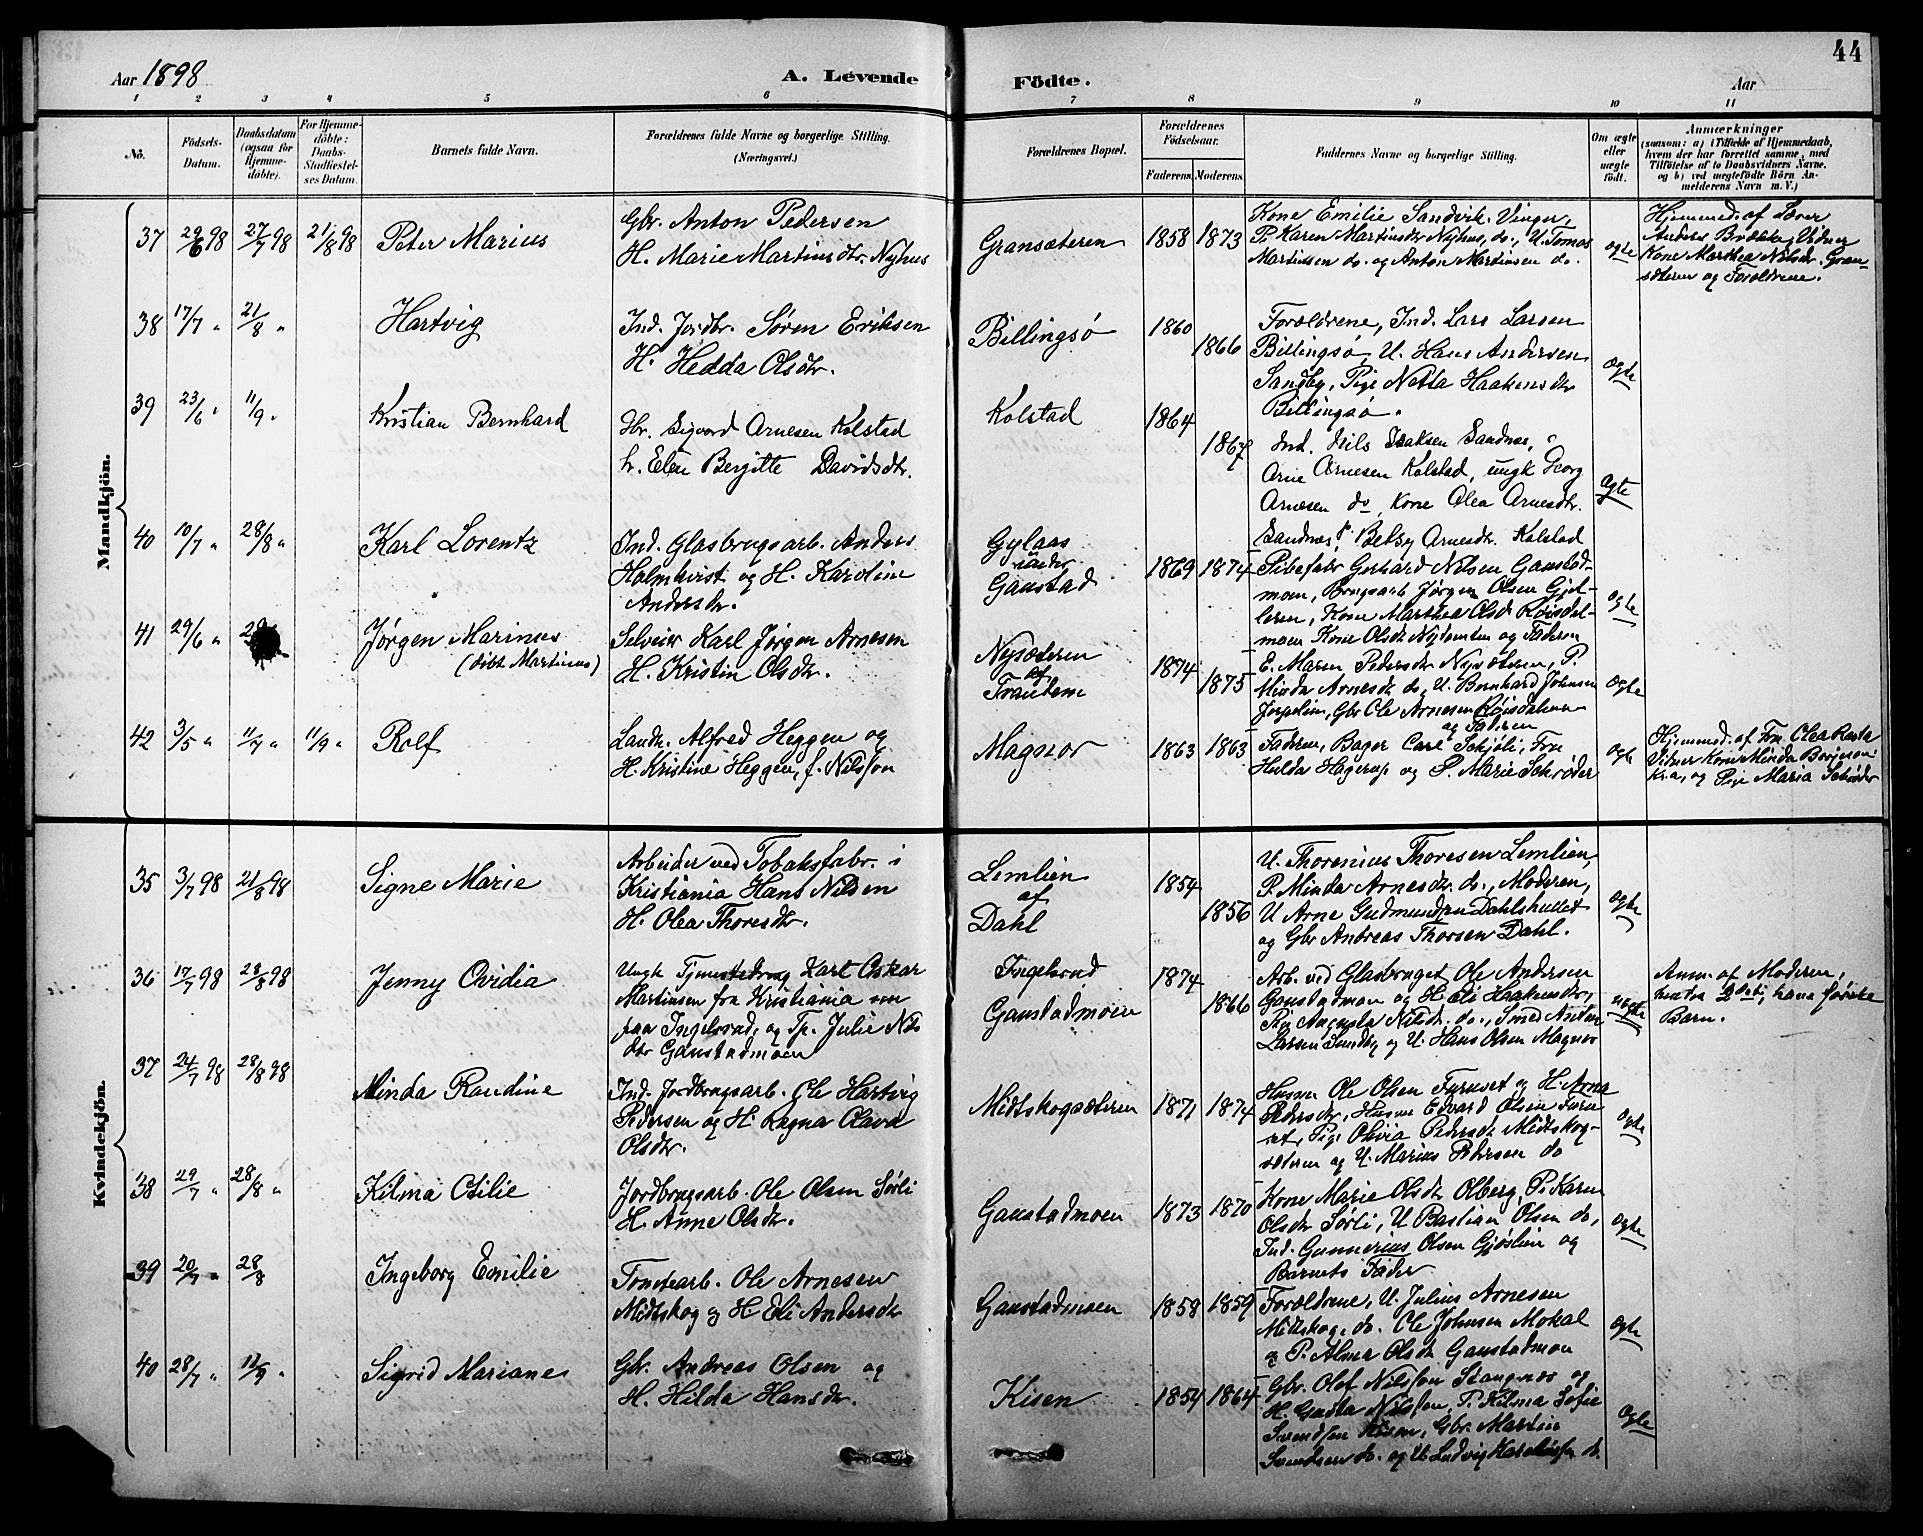 44
Aar 1898
A. Levende
Födte.
Aar
1 2 3 4 5 6 7 8 9 10 11
No.
Födsels-
Datum.
Daabsdatum
(ogsaa for
Hjemme-
döbte).
For Hjemme-
döbte:
Daabs-
Stadfæstel-
ses Datum.
Barnets fulde Navn.
Forældrenes fulde Navne og borgerlige Stilling.
(Næringsvei.)
Forældrenes Bopæl.
Forældrenes
Födselsaar.
Faderens. Moderens.
Faddernes Navne og borgerlige Stilling.
Om ægte
eller
uægte
födt.
Anmærkninger
(saasom: a) i Tilfælde af Hjemmedaab,
hvem der har forrettet samme, med
Tilföielse af to Daabsvidners Navne,
og b) ved uægtefödte Börn An-
melderens Navn m. V.)
Mandkjön.
37 29/6 98 27/7 98 21/8 98 Peter Marius
Gbr. Anton Pedersen
H. Marie Martinusdtr. Nyhus
Gransæteren 1858 1873
Kone Emilie Sandvik Vinger,
P. Karen Martinsdtr Nyhus, do., U. Tomas
Martinsen do. og Anton Martinsen do.
ægte
Hjemmed. af Lærer
Anders Vidner
Kone Marthea Nilsdr. Gran-
sæteren og Forældrene.
38 17/7 " 21/8 " Hartvig
Ind. Jordbr. Søren Eriksen
H. Hedda Olsdtr.
Billingsø 1860 1866
Forældrene, Ind. Lars Larsen
Billingsø, U. Hans Andersen
Sandby, Pige Netta Haakensdtr
Billingsø.
ægte
39 23/6 " 11/9 " Kristian Bernhard
Gbr. Sigvard Arnesen Kolstad
h. Elen Bergitte Davidsdtr.
Kolstad 1864 1867
Ind. Nils Isaksen Sandnæs,
Arne Arnesen Kolstad, ungk Georg
Arnesen do, Kone Olea Arnesdtr.
Sandnæs, P. Betsy Arnesdtr. Kolstad
ægte
40 10/7 " 28/8 " Karl Lorentz
Ind. Glasbrugsarb. Anders
Holmkvist og H. Karoline
Andersdtr.
Gylaas
under
Gaustad
1869 1874
Pibefabr Gerhard Nilsen Gaustad-
moen, Brugsarb Jørgen Olsen Gjel-
leren, Kone Marthea Olsdtr Røisdal-
moen Kone Olsdtr Nysæteren og Faderen
ægte
41 29/6 " Jørgen Marinus
(døbt Martinus)
Selveier Karl Jørgen Arnesen
H. Kristin Olsdtr.
Nysæteren
af
Trandem
1874 1875
E. Maren Pedersdtr Nysæteren, P.
Minda Arnesdtr do, U. Bernhard Johnsen
Jerpelien, Gbr Ole Arnesen Røisdalen
og Faderen
ægte
42 3/5 " 11/7 " 11/9 " Rolf
Landh. Alfred Heggen og
H. Kristine Heggen, f. Nilsson
Magnor 1863 1863
Faderen, Bager Carl Schjøli, Fru
Hulda Hagerup og P. Marie Schrøder
ægte
Hjemmed. af Fru Olea
Vidner Kone Minda
Kr.a, og Pige Maria Schrøder
Kvindekjön.
35 3/7 98 21/8 98 Signe Marie
Arbeider ved Tobaksfabr. i
Kristiania Hans Nilsen
H. Olea Thoresdtr.
Lemlien
af
Dahl
1854 1856
U. Thorenius Thoresen Lemlien,
P. Minda Arnesdtr. do., Moderen,
U Arne Gudmundsen Dahlshullet
og Gbr Andreas Thorsen Dahl.
ægte
36 17/7 98 28/8 98 Jenny Ovidia
Ungk Tjenestedreng Karl Oskar
Martinsen fra Kristiania nu
paa Ingelsrud, og Tp. Julie Nils
dtr Gaustadmoen
Ingelsrud
Gaustadmoen
1874 1866
Arb. ved Glasbruget Ole Andersen
Gaustadmoen og H. Eli Haakensdtr,
Pig Augusta Nilsdtr. do., Smed Anders
Larsen Sundby og U. Hans Olsen Magnor
uægte
Anm. af Moderen,
hendes 2det, hans første
Barn.
37 24/7 98 28/8 98 Minda Randine
Ind. Jordbrugsarb. Ole Hartvig
Pedersen og H. Ragna Olava
Olsdtr.
Midtskogsæteren 1871 1874
Husm Ole Olsen Furuset og H. Arna
Pedersdtr, Husm Edvard Olsen Furu-
set, Pige Olivia Pedersdtr Midtskog-
sæteren og U. Marius Pedersen do
ægte
38 29/7 " 28/8 " Kilma Otilie
Jordbrugsarb. Ole Olsen Sørli
H. Anne Olsdtr.
Gaustadmoen 1873 1870
Kone Marie Olsdtr Olberg, P. Karen
Olsdtr Sørli, U Bastian Olsen do,
Ind. Gunnerius Olsen Gjøslien og
Barnets Fader
ægte
39 20/7 " 28/8 Ingeborg Emilie
Tomtearb. Ole Arnesen
Midtskog og H. Eli Andersdtr
Gaustadmoen 1858 1859
Forældrene, U. Julius Arnesen
Midtskog, do. Ole Johnsen Mokal
og P. Alma Olsdtr Gaustadmoen
ægte
40 28/7 " 11/9 " Sigrid Mariane
Gbr. Andreas Olsen og
H. Hilda Hansdtr.
Kisen 1854 1864
Gbr. Olof Nilsson Stangnæs og
H. Gusta Nilssen, P. Kilma Sofie
Svendsen Kisen, Gbr. Martin
Svendsen do. og U. Ludvig do.
ægte